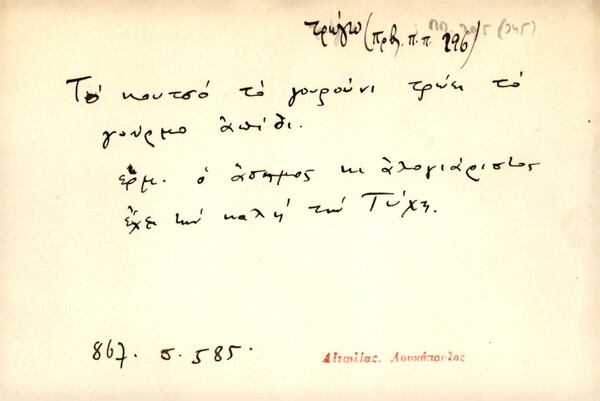 τρώγω (πρβ. π.π. 296)
Τὸ κουτσό τὸ γουρούνι τρώει τὸ
γούρμο ἀπίδι.
ἑρμ. ὁ ἄσημος κι ἀλογιάριστος
ἔχει τὴν καλή τὴν Τύχη.
867. σ. 585.
Αἰτωλίας. Λουκόπουλος